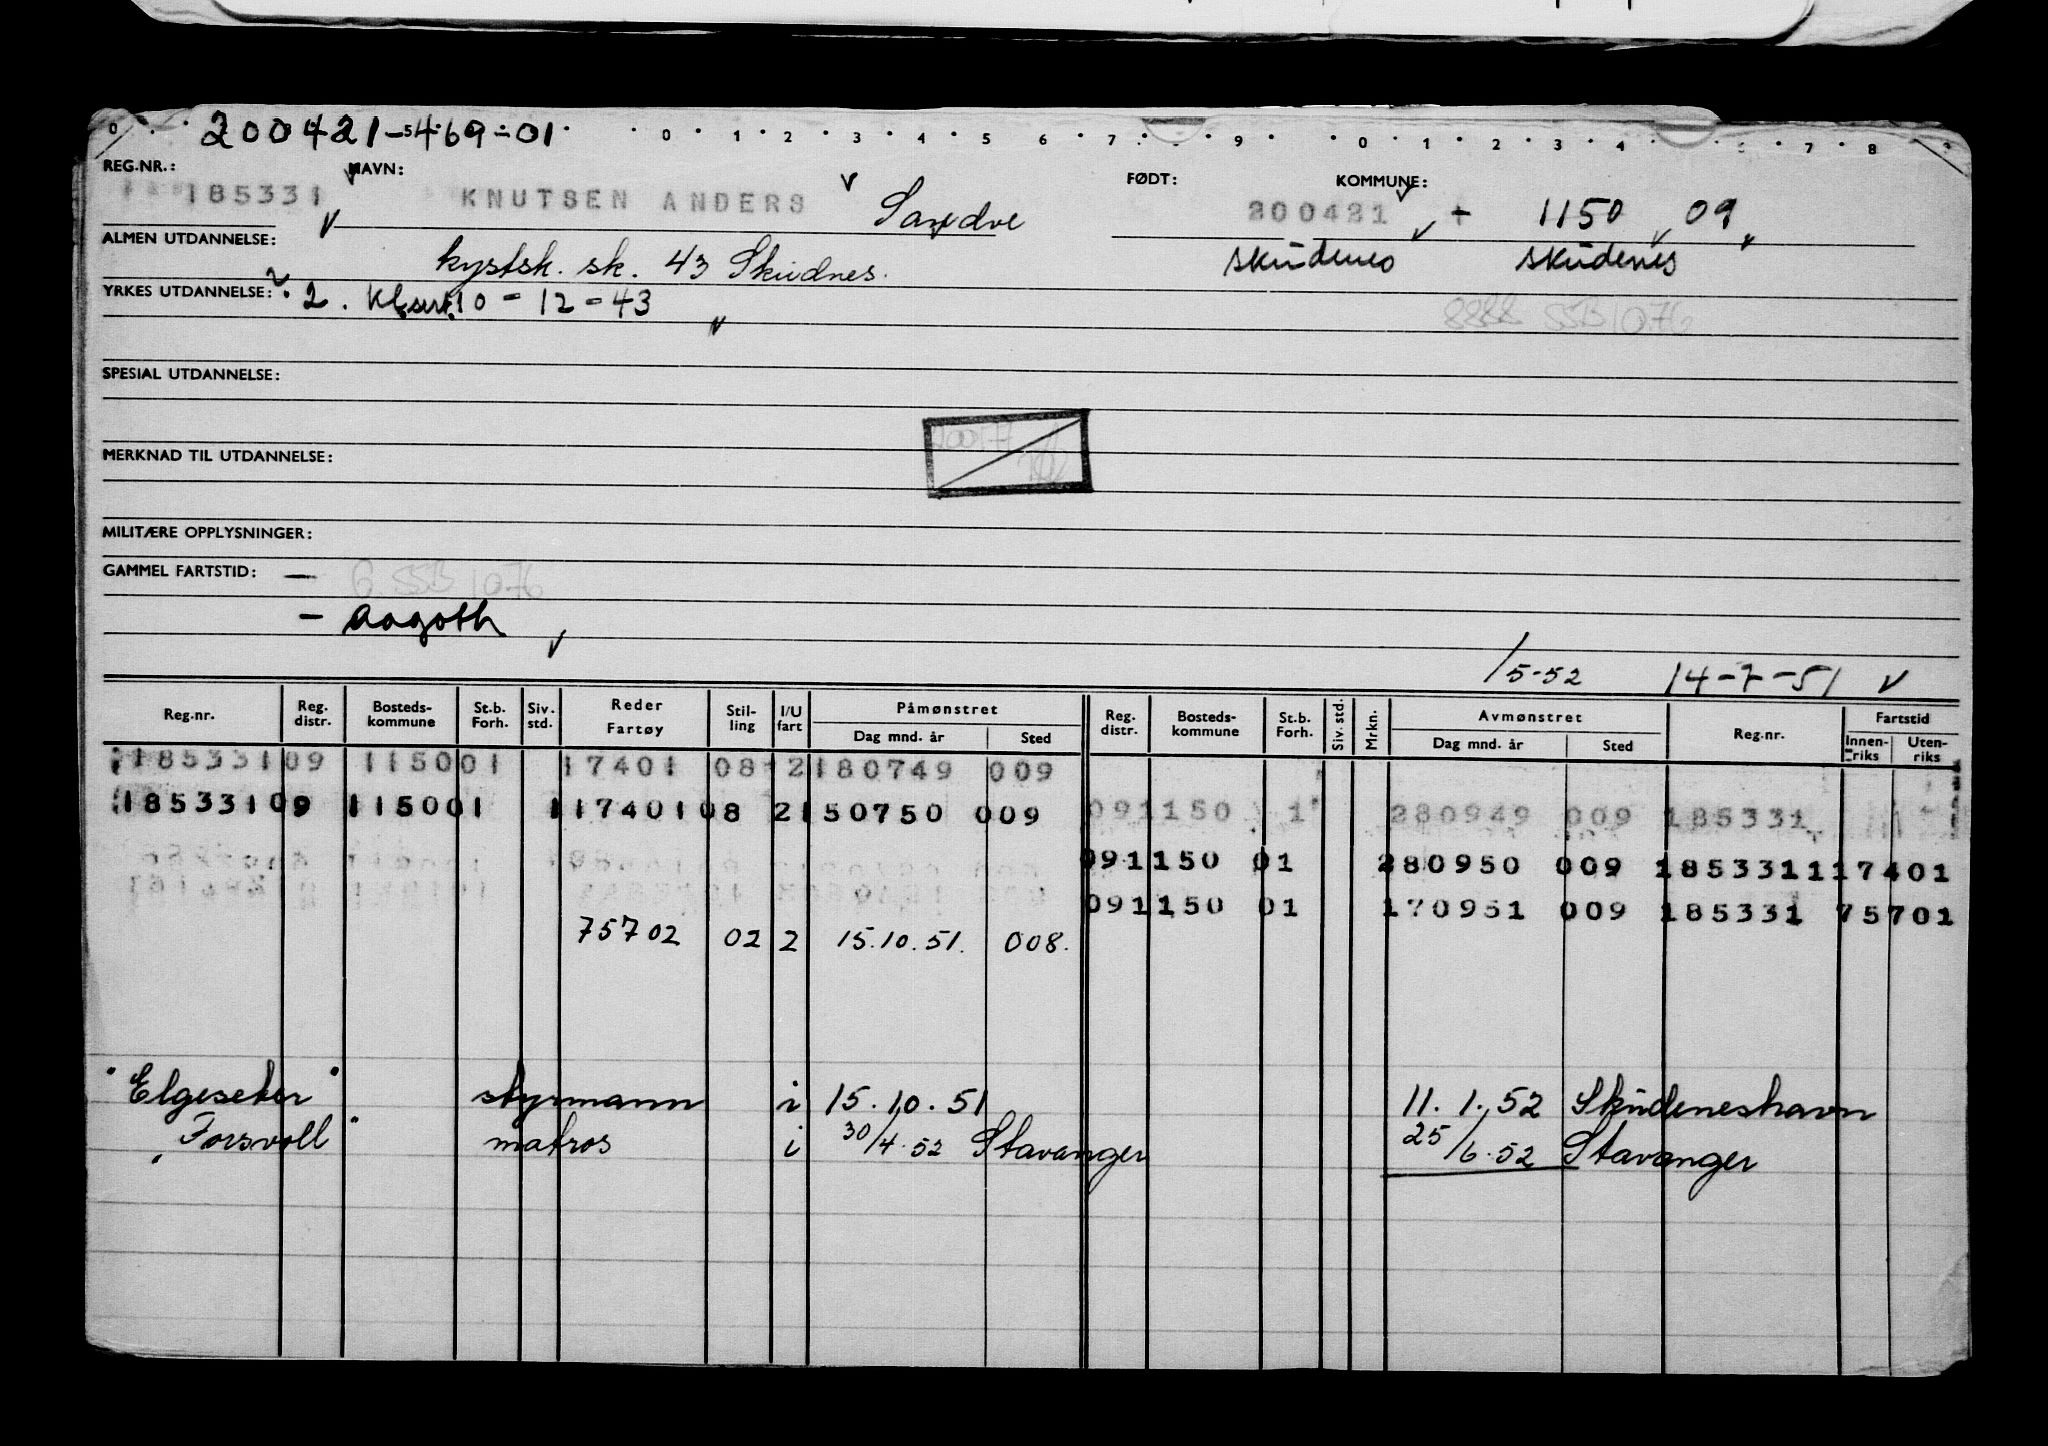 200421-469-01
0 1 2 3 4 5 6 7 9 0 1 2 3 4 7 8
REG.NR.: NAVN: FØDT: KOMMUNE:
185331 KNUTSEN ANDERS Sandve 200421 + 1150 09
ALMEN UTDANNELSE: kystsk. sk. 43 Skudnes. Skudenes Skudenes
YRKES UTDANNELSE: 2. Kl. sert. 10-12-43
SSB 1076
SPESIAL UTDANNELSE:
MERKNAD TIL UTDANNELSE:
MILITÆRE OPPLYSNINGER:
GAMMEL FARTSTID: — SSB 1076
— Aagoth
1/5-52 14-7-51
Reg.nr. Reg. distr. Bosteds-kommune St.b. Forh. Siv. std. Reder Fartøy Stil-ling I/U fart Påmønstret Dag mnd. år Sted Reg. distr. Bosteds-kommune St.b. Forh. Siv. std. Mrkn. Avmønstret Dag mnd. år Sted Reg.nr. Fartstid Innen-riks Uten-riks
185331 09 1150 01 17401 08 2 180749 009
185331 09 1150 01 117401 08 2 150750 009 09 1150 1 280949 009 185331
09 1150 01 280950 009 185331 117401
09 1150 01 170951 009 185331 75701
75702 02 2 15.10.51. 008.
"Elgeseter" styrmann i 15.10.51 11.1.52 Skudeneshavn
"Forsvoll" matros i 30/4.52 Stavanger 25/6.52 Stavanger